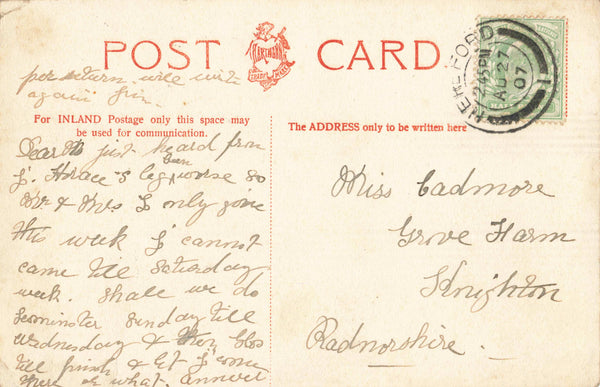 POST CARD
HARTMANN
TRADE MARK
HEREFORD
2.45 PM
AU 27
07
per return will writ
again
For INLAND Postage only this space may
be used for communication.
The ADDRESS only to be written here
Dear just heard from
J. Horace's leg been worse so
Mr & Mrs J only gone
this week J cannot
came till Saturday
week. Shall we do
Leominster Sunday till
Wednesday & then
till finish & let J come
there or what. answer
Miss Cadmore
Grove Farm
Knighton
Radnorshire